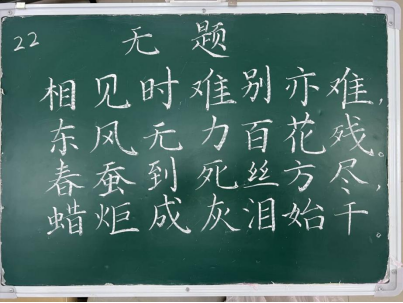 22
无题
相见时难别亦难，
东风无力百花残。
春蚕到死丝方尽，
蜡炬成灰泪始干。